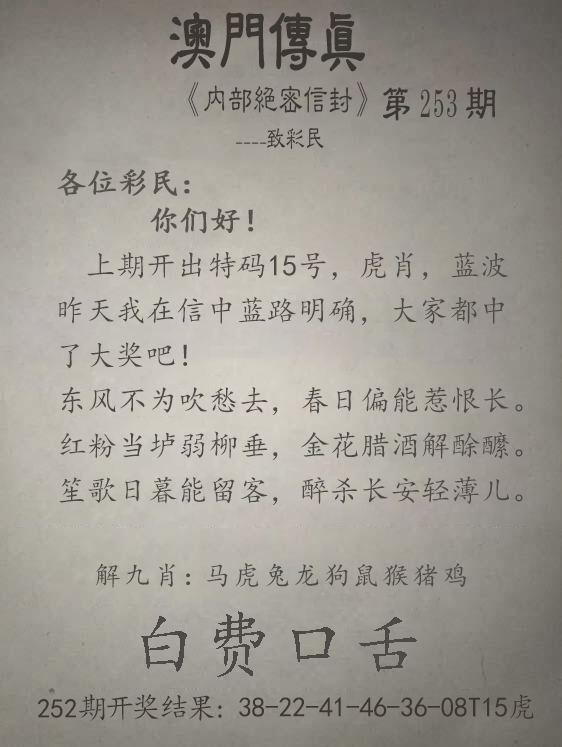 澳門傳眞
《内部絕密信封》第253期
----致彩民
各位彩民：
你们好！
上期开出特码15号，虎肖，蓝波
昨天我在信中蓝路明确，大家都中
了大奖吧！
东风不为吹愁去，春日偏能惹恨长。
红粉当垆弱柳垂，金花腊酒解酴醾。
笙歌日暮能留客，醉杀长安轻薄儿。
解九肖：马虎兔龙狗鼠猴猪鸡
白费口舌
252期开奖结果：38-22-41-46-36-08T15虎